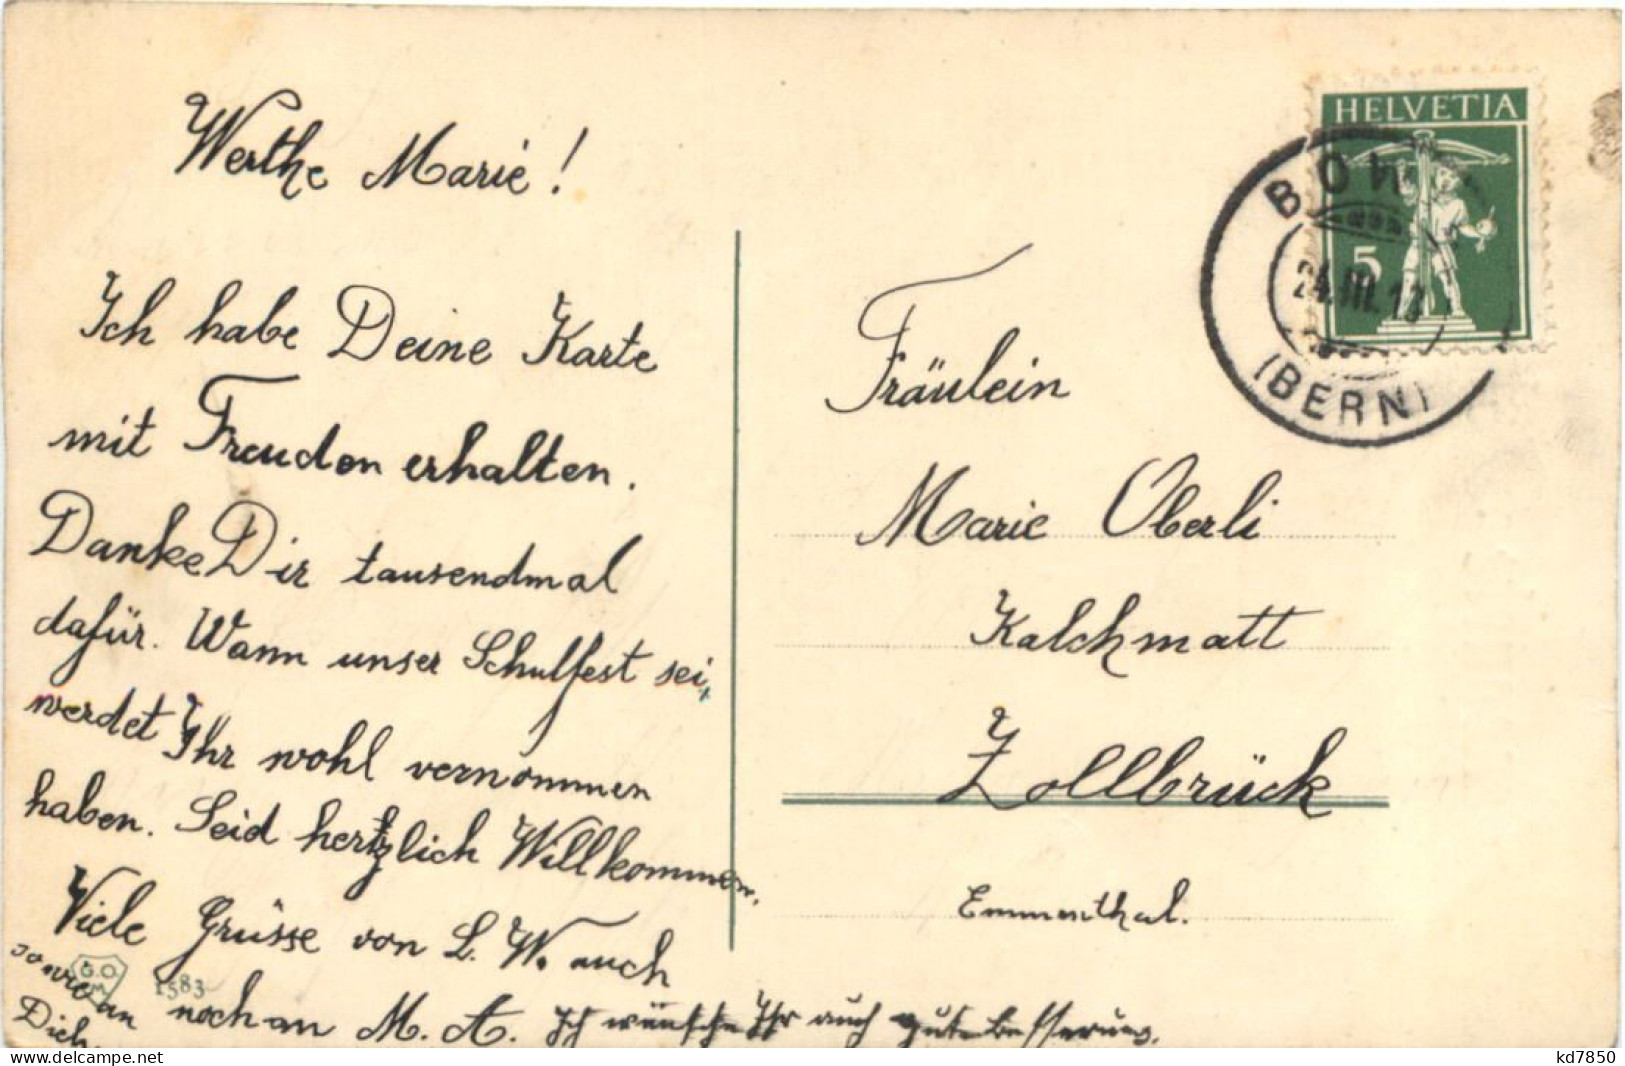 Werthe Marie!
Ich habe Deine Karte
mit Freuden erhalten.
Danke Dir tausendmal
dafür. Wann unser Schulfest sei,
werdet Ihr wohl vernommen
haben. Seid hertzlich Willkommen.
Viele Grüsse von L. W. auch
sowie an noch an M. A. Ich wünsche Ihr auch gute Besserung.
Dich
G.O.
M
1583
HELVETIA
5
BOWI
24.III.13
(BERN)
Fräulein
Marie Oberli
Kalchmatt
Zollbrück
Emmenthal.
delcampe.net
kd7850